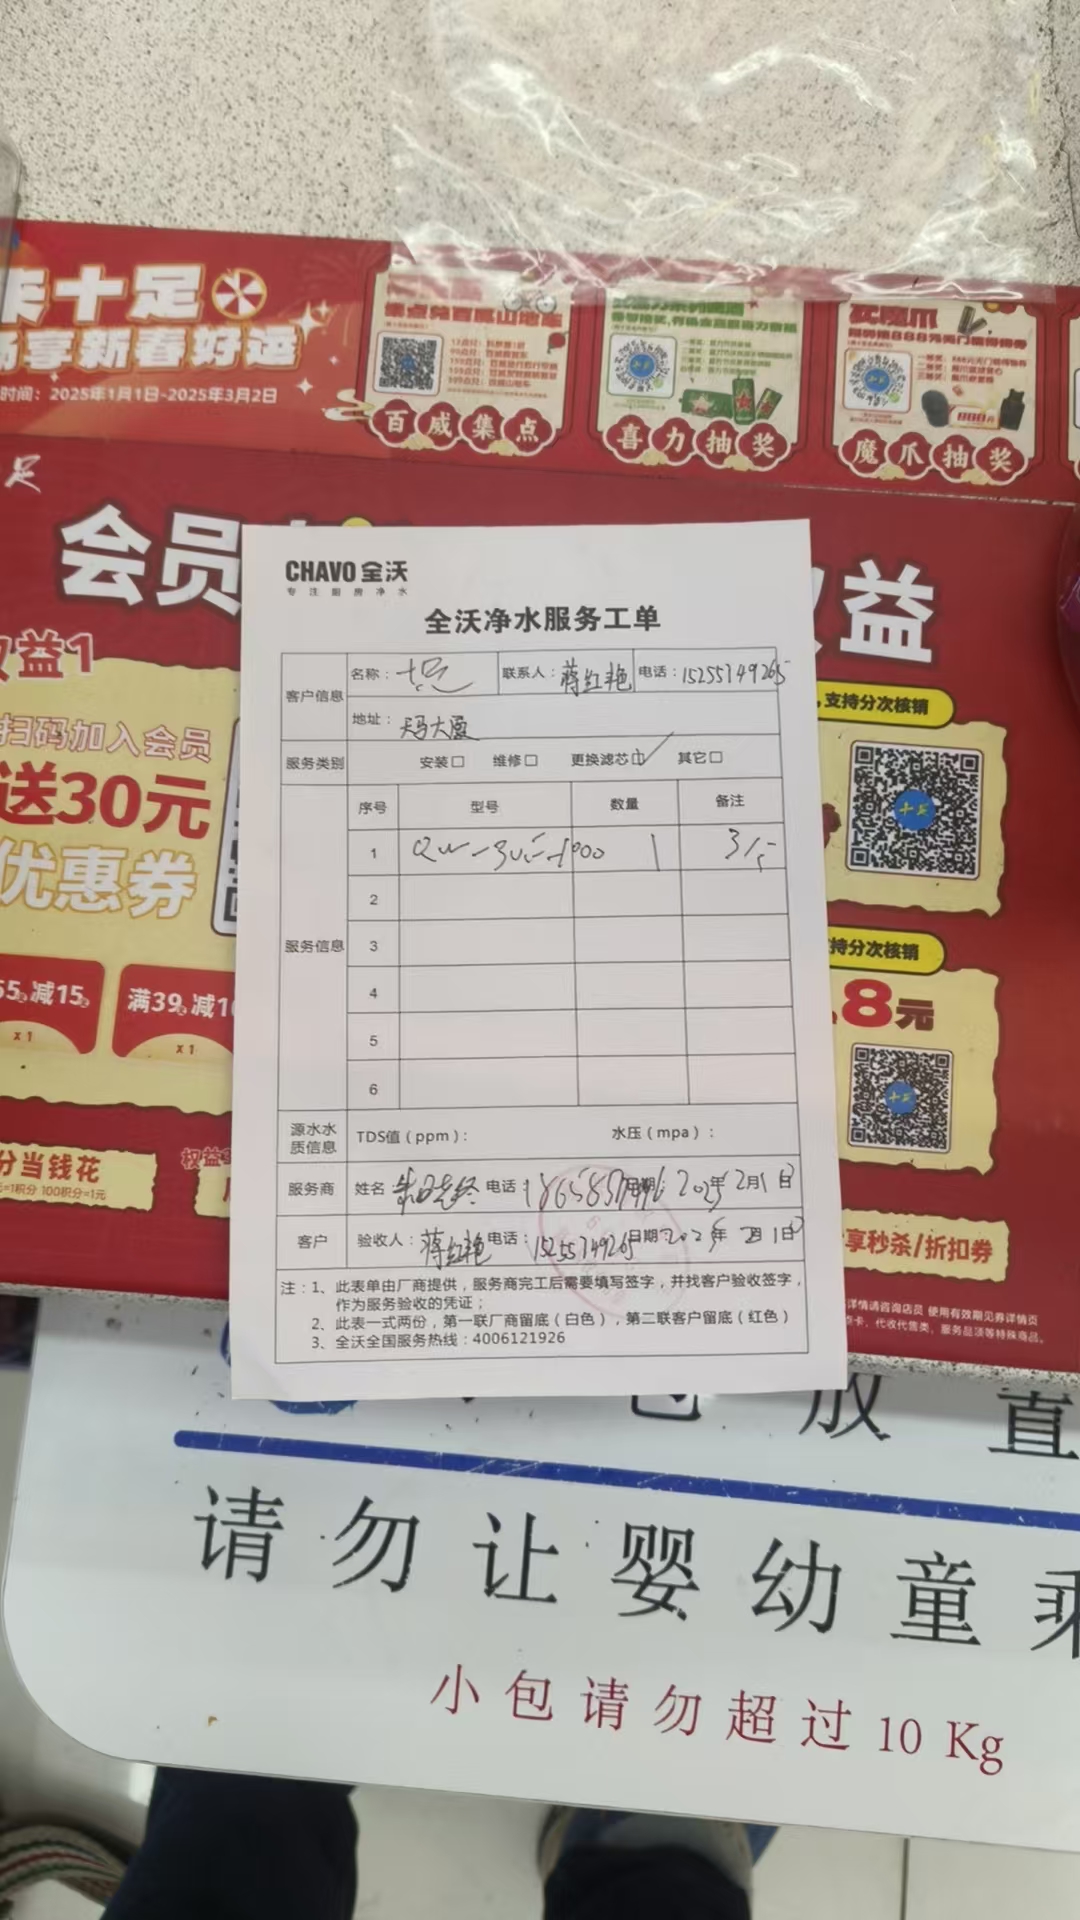 十足
享新春好运
时间：2025年1月1日-2025年3月2日
百威集点
喜力抽奖
魔爪抽奖
足
会员
益
权益1
扫码加入会员
送30元
优惠券
减15元
x 1
满39元减1
x 1
分当钱花
=1积分 100积分=1元
支持分次核销
持分次核销
.8元
享秒杀/折扣券
详情请咨询店员 使用有效期见券详情页
CHAVO 全沃
专注厨房净水
全沃净水服务工单
客户信息
名称：十足
联系人：蒋红艳
电话：15255749265
地址：
服务类别
安装□ 维修□ 更换滤芯☑ 其它□
服务信息
序号 型号 数量 备注
1 1
2
3
4
5
6
源水水质信息
TDS值（ppm）： 水压（mpa）：
服务商
姓名 电话： 日期： 2025年2月1日
客户
验收人：蒋红艳 电话：15255749265 日期：2025年2月1日
注：1、此表单由厂商提供，服务商完工后需要填写签字，并找客户验收签字，
作为服务验收的凭证；
2、此表一式两份，第一联厂商留底（白色），第二联客户留底（红色）
3、全沃全国服务热线：4006121926
放 直
请勿让婴幼童乘
小包请勿超过10 Kg